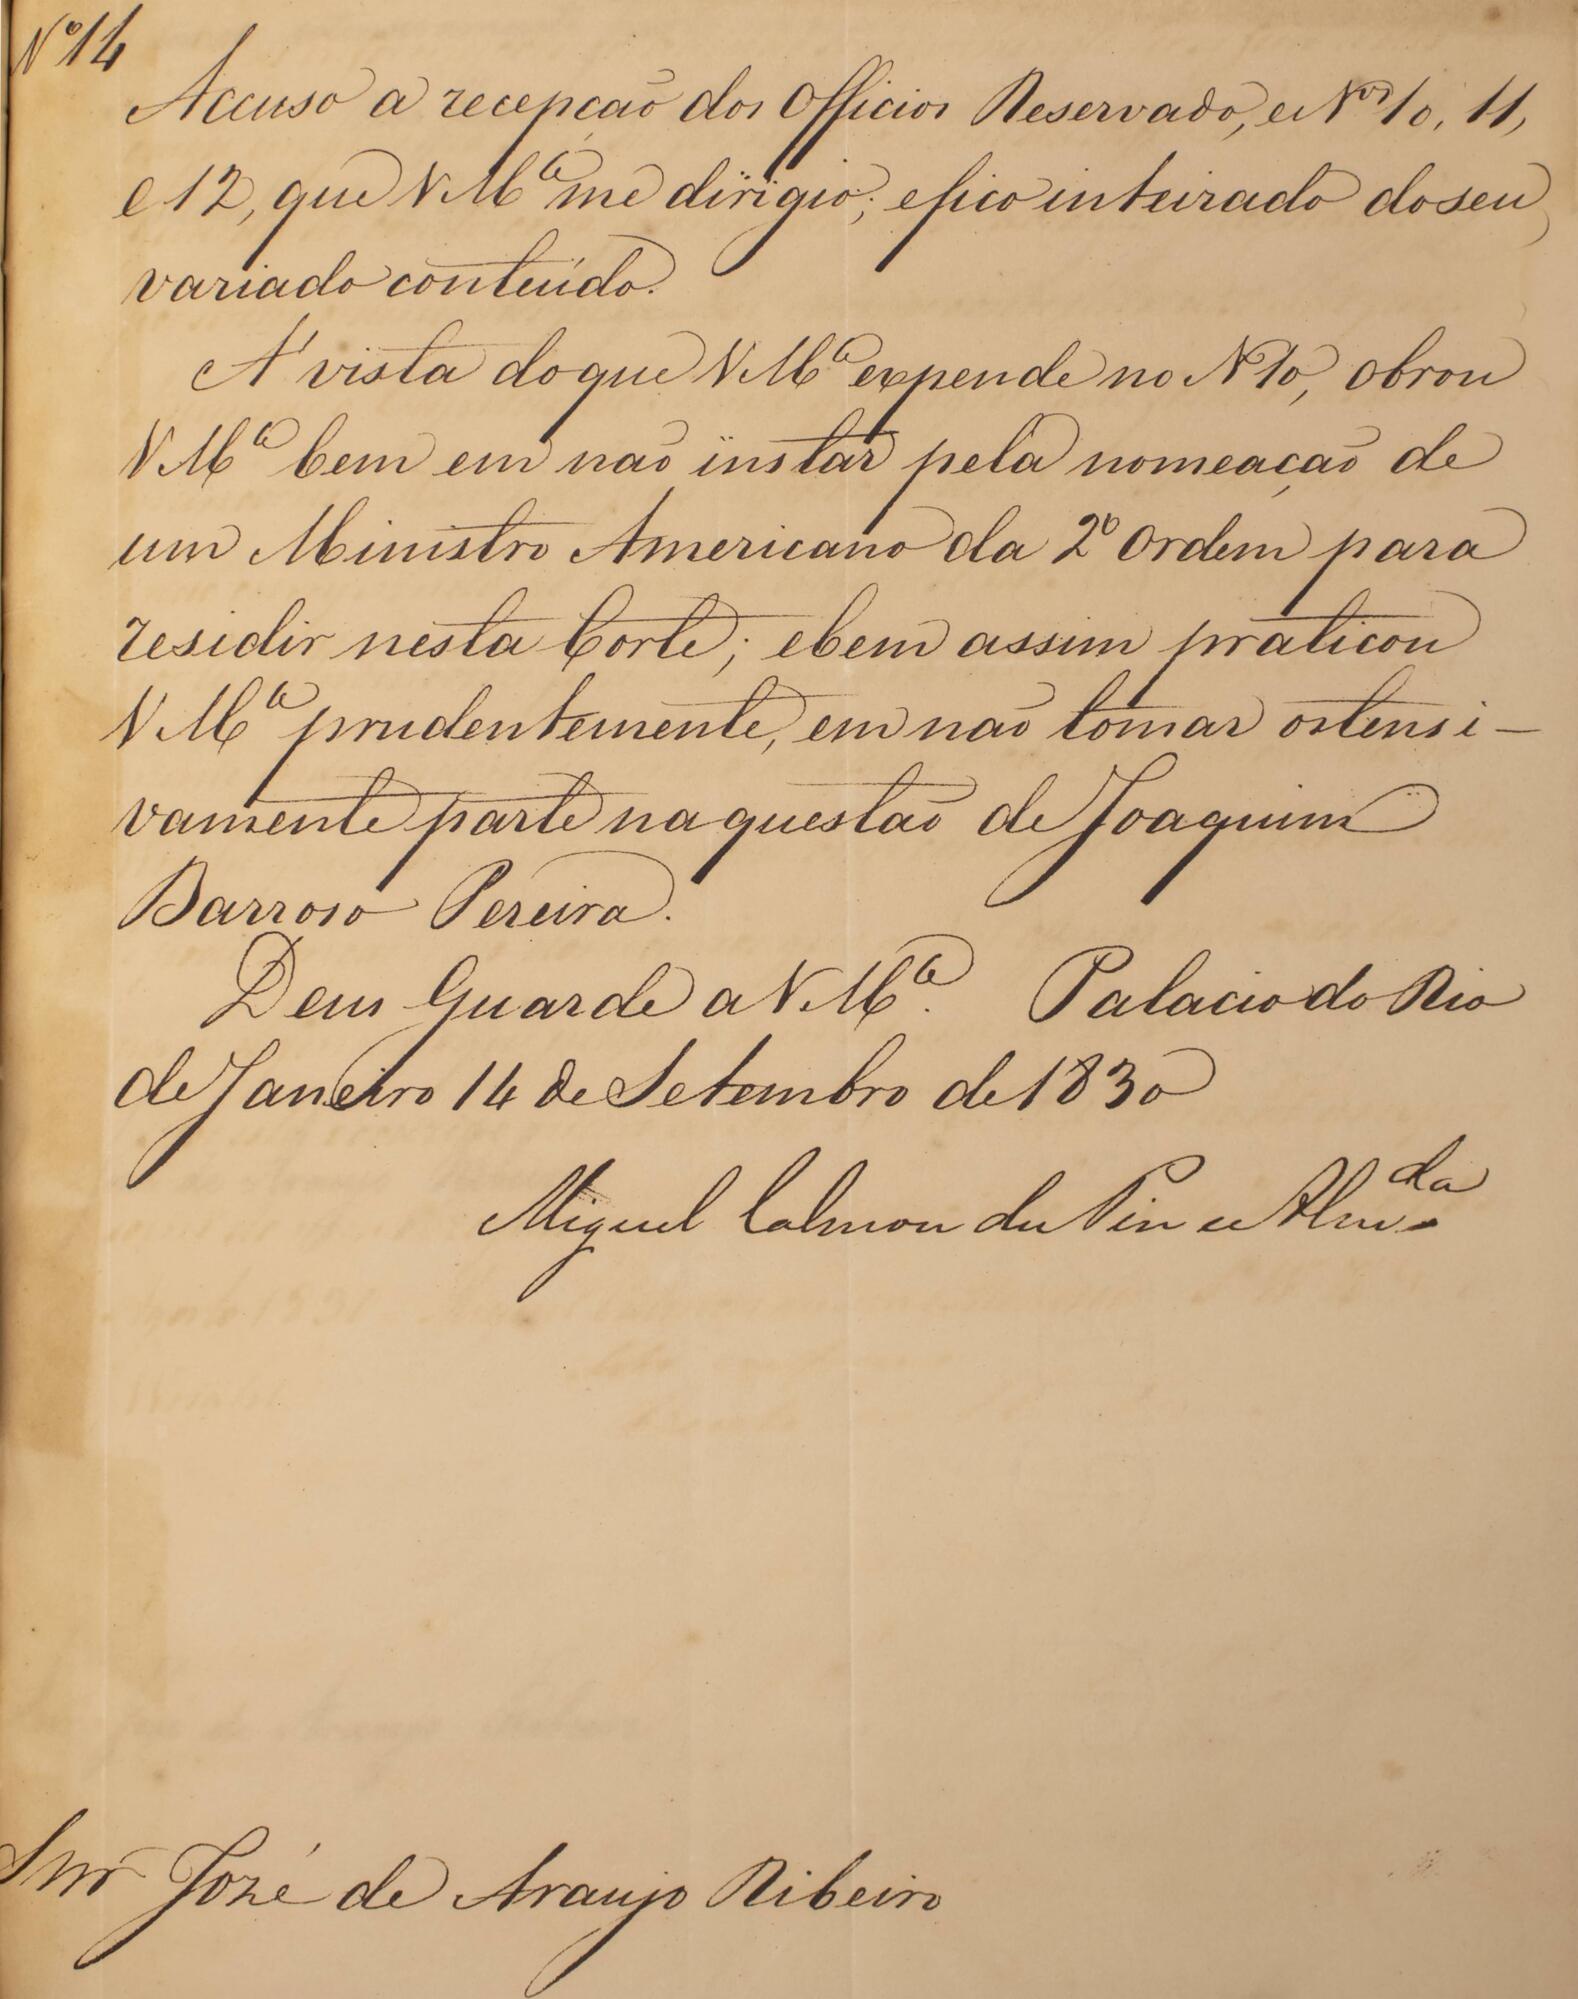 Nº 14
Accuso a recepção dos Officios Reservado, e Nos 10, 11,
e 12, que V Mce me dirigio; e fico inteirado do seu
variado conteúdo.
A' vista do que V Mce expende no N 10, obrou
V Mce bem em não instar pela nomeação de
um Ministro Americano da 2ª Ordem para
residir nesta Corte; e bem assim praticou
V Mce prudentemente, em não tomar ostensi-
vamente parte na questão de Joaquim
Barroso Pereira.
Deus Guarde a V Mce. Palacio do Rio
de Janeiro 14 de Setembro de 1830
Miguel Calmon du Pin e Almda
Snr José de Araujo Ribeiro